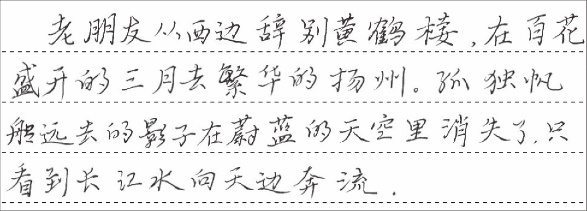 老朋友从西边辞别黄鹤楼,在百花
盛开的三月去繁华的扬州。孤独帆
船远去的影子在蔚蓝的天空里消失了,只
看到长江水向天边奔流.